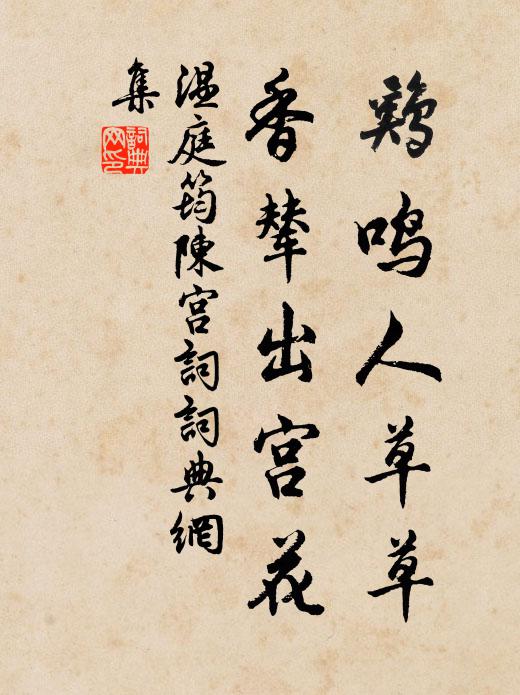 鷄鳴人草草
香輦出宮花
温庭筠陳宮詞詞典網
集
詞典
网印